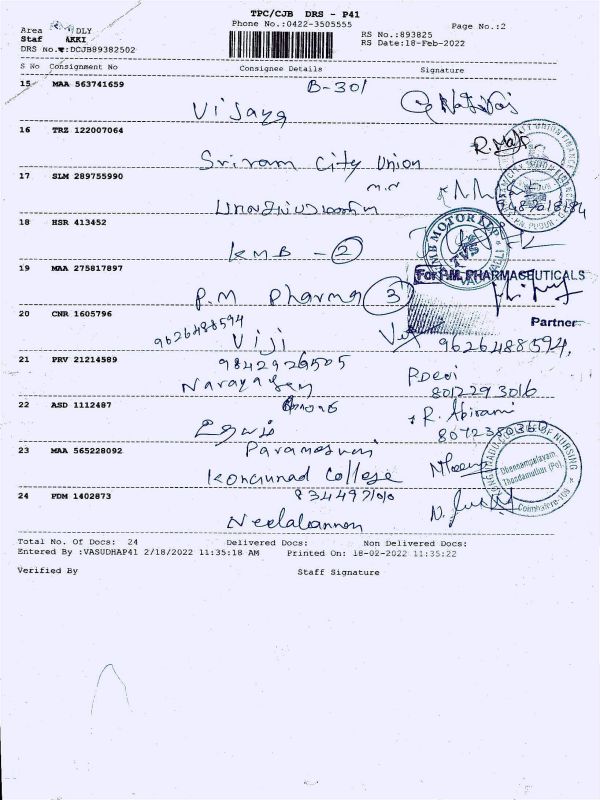 TPC/CJB DRS - P41
Phone No.:0422-3505555
Page No.:2
Area DLY
Staf AKKI
DRS No.:DCJB89382502
RS No.:893825
RS Date:18-Feb-2022
S No Consignment No Consignee Details Signature
15 MAA 563741659 B-301
Vijaya
16 TRZ 122007064
Sriram City Union
17 SLM 289755990
18 HSR 413452
KMB - 2
MB MOTOR
TVS
19 MAA 275817897
For P.M. PHARMACEUTICALS
P.M Pharma 3
Partner
20 CNR 1605796
9626488594 Viji 9626488594,
21 PRV 21214589 9842926505
Narayanan 8012293016
22 ASD 1112487
R. Abirami
8072380360
23 MAA 565228092 Parameswari
Kongunad College
OF NURSING
Coimbatore
24 PDM 1402873
Neelakannan
Total No. Of Docs: 24 Delivered Docs: Non Delivered Docs:
Entered By :VASUDHAP41 2/18/2022 11:35:18 AM Printed On: 18-02-2022 11:35:22
Verified By Staff Signature